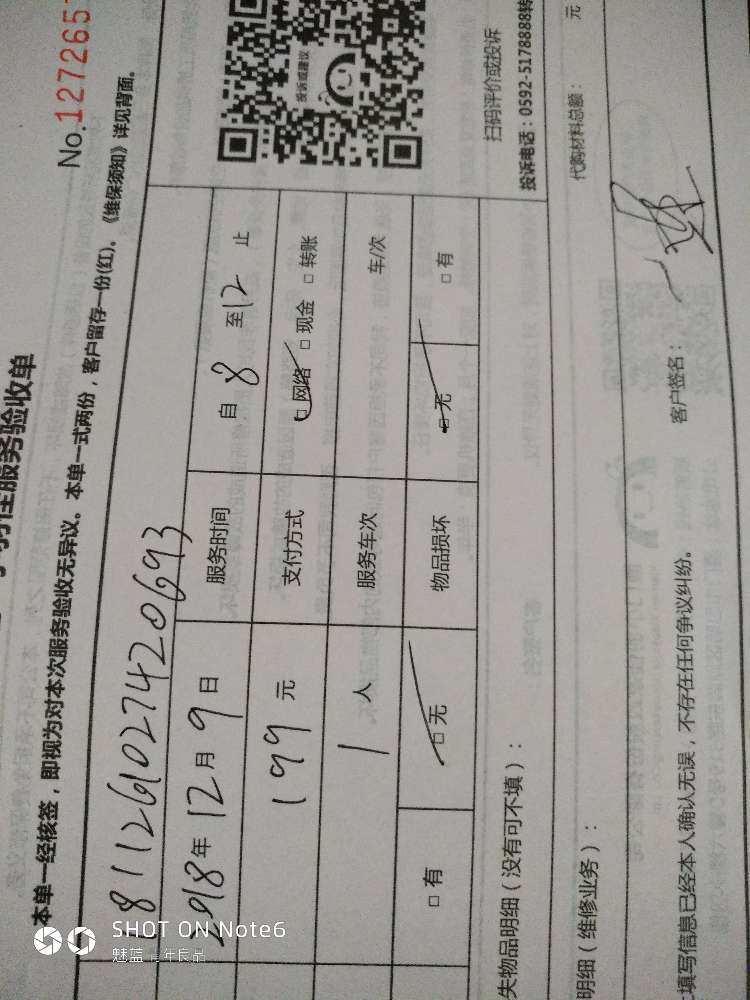 No.127265
服务验收单
本单一经核签，即视为对本次服务验收无异议。本单一式两份，客户留存一份(红)。《维保须知》详见背面。
181126102742069 3
2018年12月9日 服务时间 自 8 至 12 止
199 元 支付方式 □网络 □现金 □转账
1 人 服务车次 车/次
□有 □无 物品损坏 □无 □有
失物品明细（没有可不填）：
投诉或建议
扫码评价或投诉
投诉电话：0592-5178888转
明细（维修业务）：
代购材料总额： 元
填写信息已经本人确认无误，不存在任何争议纠纷。 客户签名：
SHOT ON Note6
魅蓝 青年良品